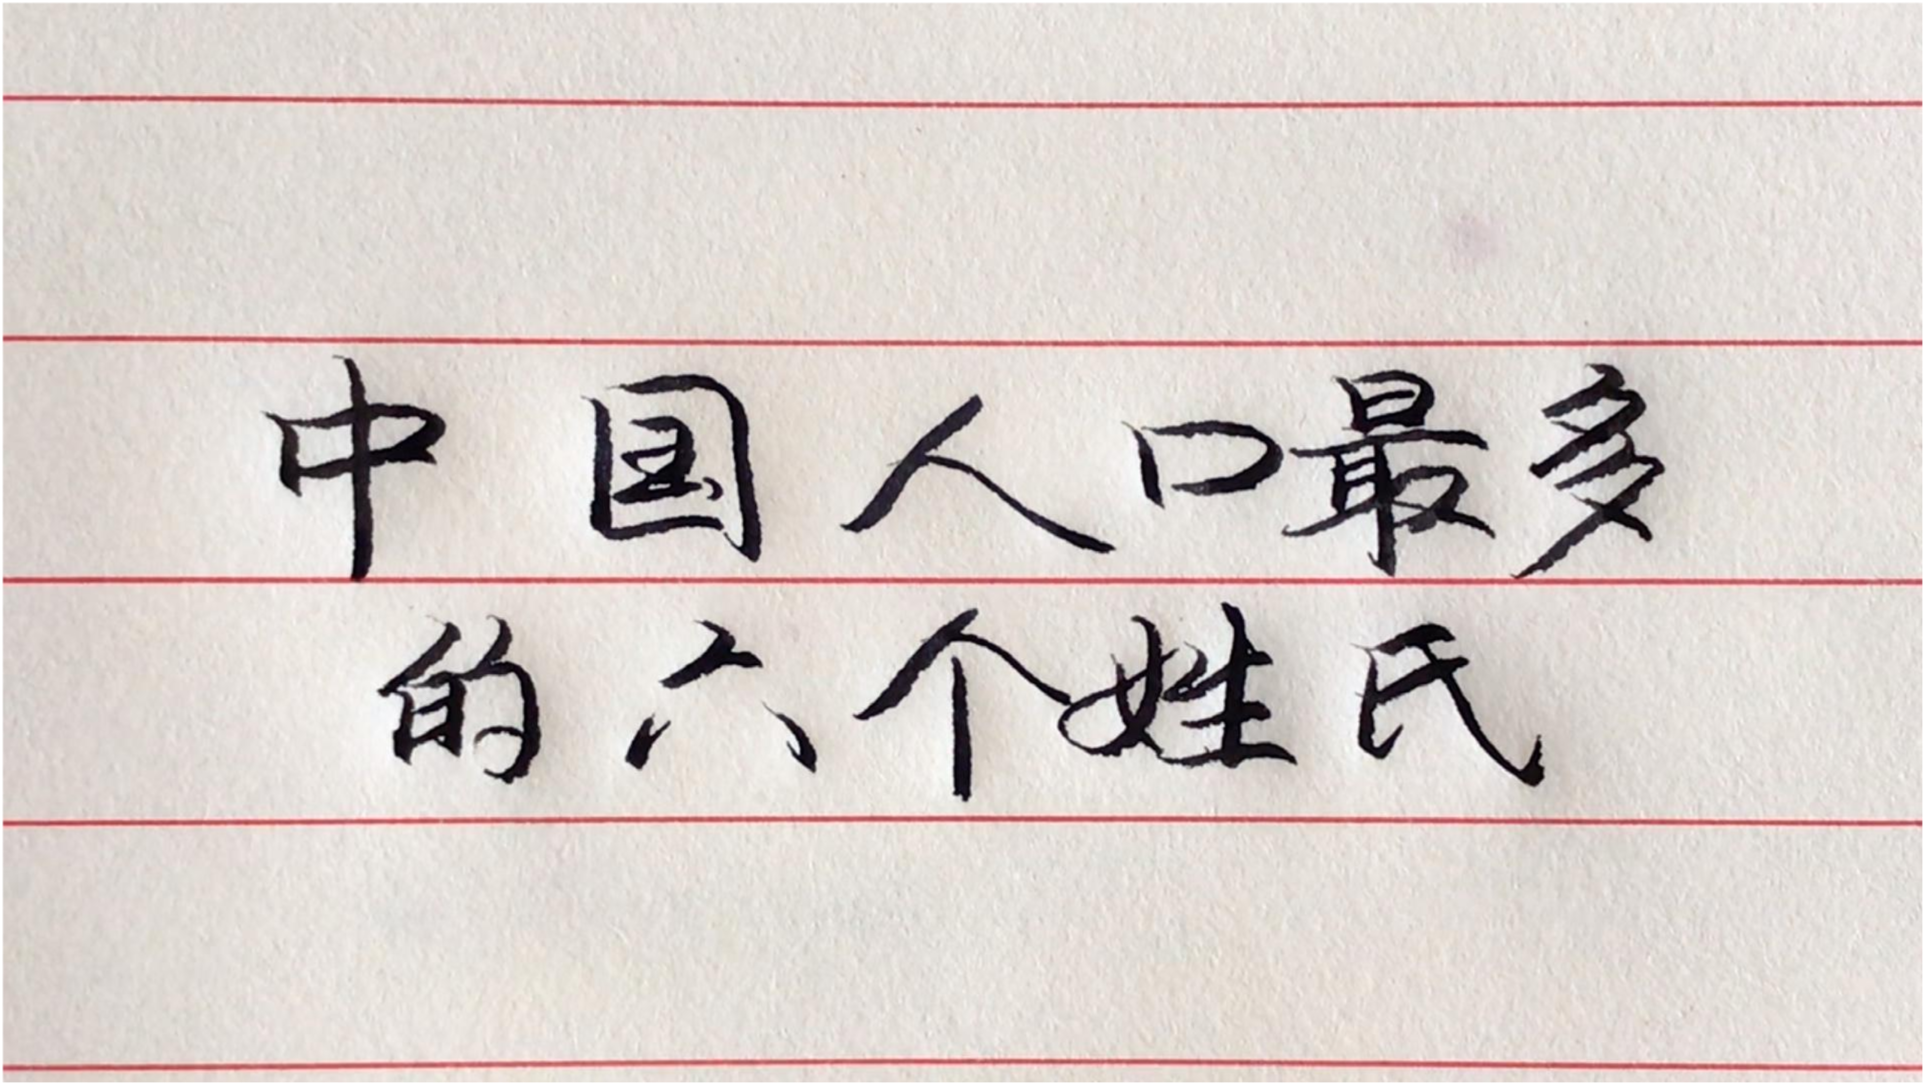 中国人口最多
的六个姓氏